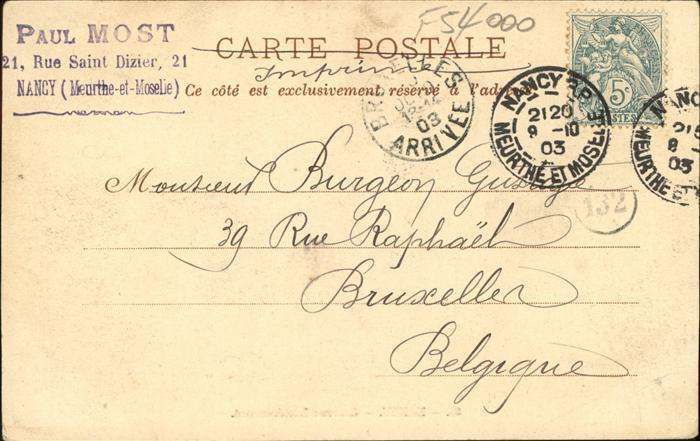 PAUL MOST
21, Rue Saint Dizier, 21
NANCY (Meurthe-et-Moselle)
F54000
CARTE POSTALE
Imprimé
Ce côté est exclusivement réservé à l'adresse
BRUXELLES
03
ARRIVÉE
5c
POSTES
NANCY R.P.
2120
8 -10
03
MEURTHE ET MOSELLE
NANC
21
8
03
MEURTHE ET
Monsieur Burgeon Gustave
132
39 Rue Raphaël
Bruxelles
Belgique